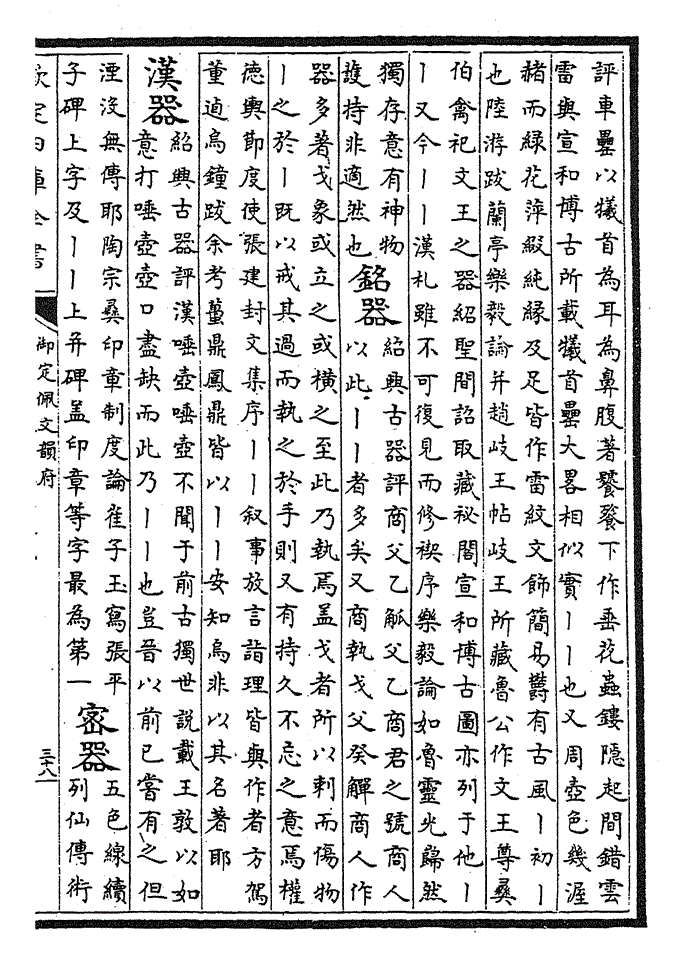 評車罍以犧首為耳為鼻腹著饕餮下作垂花蟲鏤隱起間錯雲
雷與宣和博古所載犧首罍大畧相似實丨丨也又周壺色幾渥
赭而緑花萍綴純縁及足皆作雷紋文飾簡易欝有古風丨初丨
也陸游跋蘭亭樂毅論并趙岐王帖岐王所藏魯公作文王尊彞
伯禽祀文王之器紹聖間詔取藏秘閣宣和博古圖亦列于他丨
丨又今丨丨漢札雖不可復見而修禊序樂毅論如魯靈光歸然
獨存意有神物
䕶持非適然也
銘器
紹興古器評商父乙觚父乙商君之號商人
以此丨丨者多矣又商執戈父癸觶商人作
器多著戈象或立之或横之至此乃執焉盖戈者所以刺而傷物
丨之於丨既以戒其過而執之於手則又有持久不忘之意焉權
德輿節度使張建封文集序丨丨叙事放言詣理皆與作者方駕
董逌烏鐘跋余考蠆鼎鳳鼎皆以丨丨安知烏非以其名著耶
漢器
紹興古器評漢唾壺唾壺不聞于前古獨世説載王敦以如
意打唾壺壺口盡缺而此乃丨丨也豈晉以前已嘗有之但
湮沒無傳耶陶宗彞印章制度論崔子玉寫張平
子碑上字及丨丨上并碑盖印章等字最為第一
宻器
五色線續
列仙傳術
欽定四庫全書
御定佩文韻府
三十八